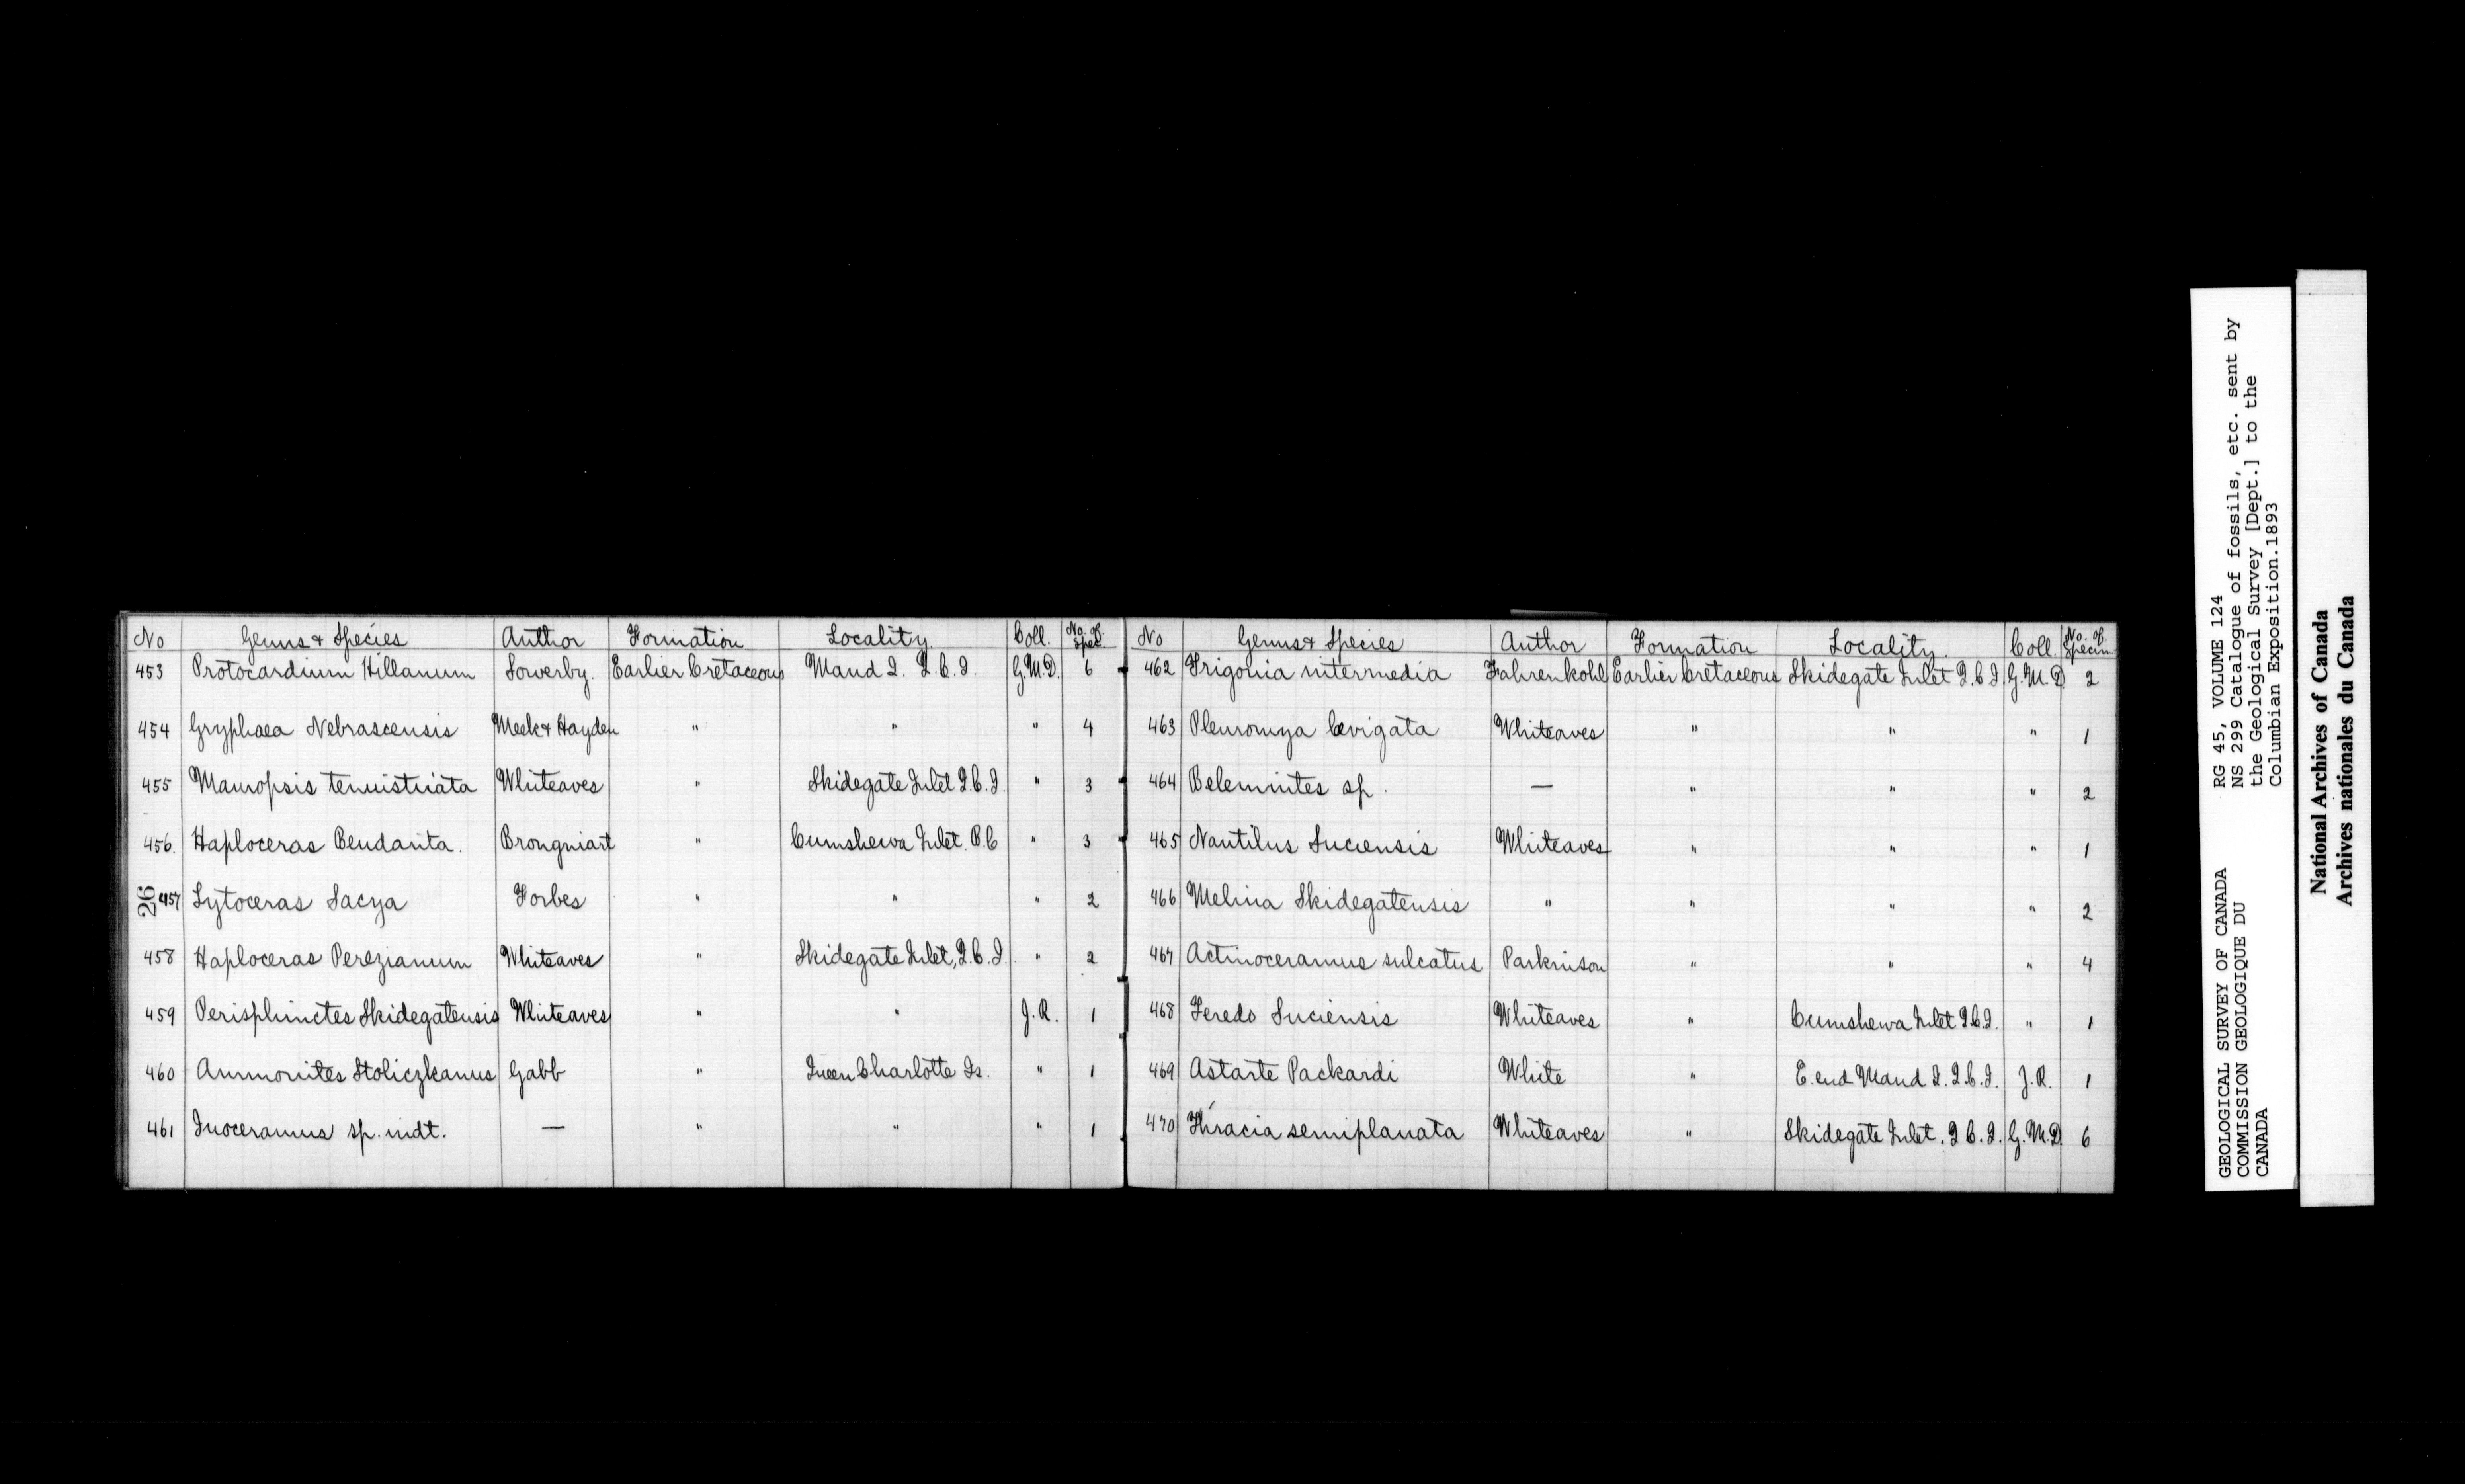 No Genus & Species Author Formation Locality Coll. No. of Spec.
453 Protocardium Hillanum Sowerby. Earlier Cretaceous Maud I. Q.C.I. G.M.D. 6
454 Gryphaea Nebrascensis Meek & Hayden " " " 4
455 Mauropsis tenuistriata Whiteaves " Skidegate Inlet Q.C.I. " 3
456. Haploceras Beudanta. Brongniart " Cumshewa Inlet. B.C " 3
26
457 Lytoceras Sacya Forbes " " " 2
458 Haploceras Perezianum Whiteaves " Skidegate Inlet, Q.C.I. " 2
459 Perisphinctes Skidegatensis Whiteaves " " J.R. 1
460 Ammonites Stoliczkanus Gabb " Queen Charlotte Is. " 1
461 Inoceramus sp. indt. — " " " 1
No Genus & Species Author Formation Locality. Coll. No. of Specim.
462 Trigonia intermedia Fahrenkohl Earlier Cretaceous Skidegate Inlet Q.C.I. G.M.D 2
463 Pleuromya lævigata Whiteaves " " " 1
464 Belemnites sp. — " " " 2
465 Nautilus Suciensis Whiteaves " " " 1
466 Melina Skidegatensis " " " " 2
467 Actinoceramus sulcatus Parkinson " " " 4
468 Teredo Suciensis Whiteaves " Cumshewa Inlet Q.C.I. " 1
469 Astarte Packardi White " E. end Maud I. Q.C.I. J.R. 1
470 Thracia semiplanata Whiteaves " Skidegate Inlet. Q.C.I. G.M.D. 6
GEOLOGICAL SURVEY OF CANADA
COMMISSION GEOLOGIQUE DU
CANADA
RG 45, VOLUME 124
NS 299 Catalogue of fossils, etc. sent by
the Geological Survey [Dept.] to the
Columbian Exposition.1893
National Archives of Canada
Archives nationales du Canada